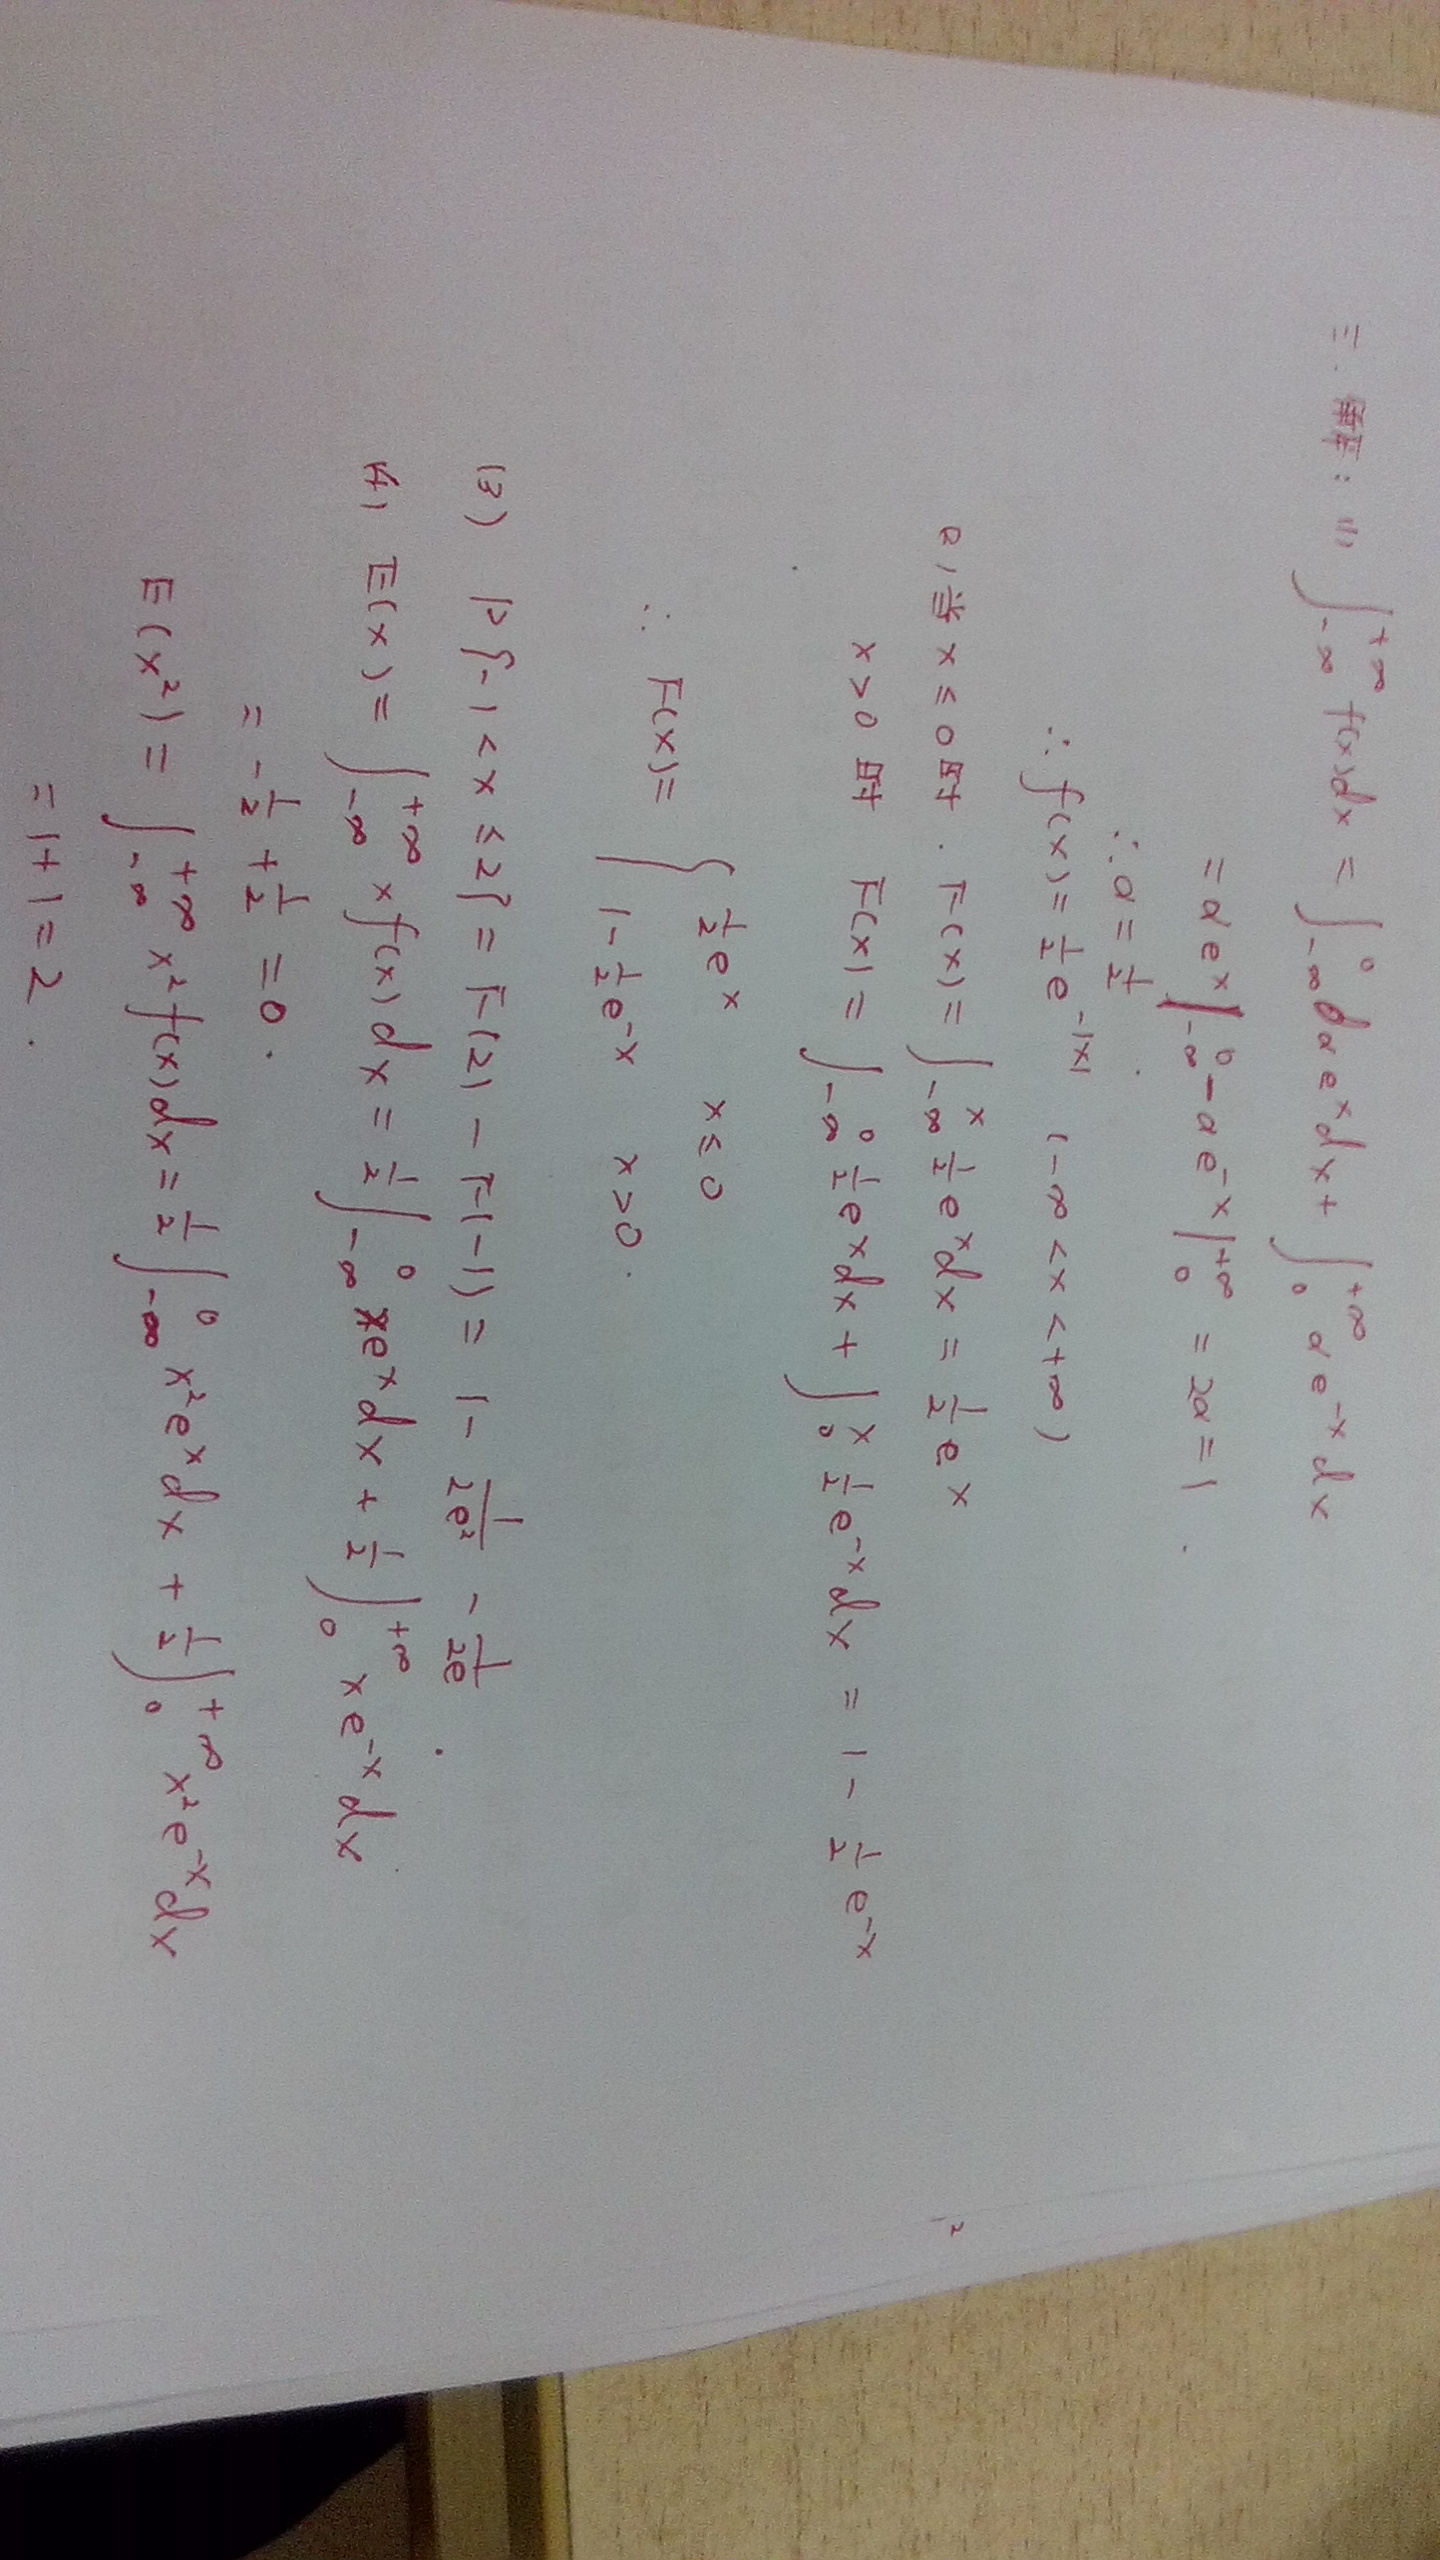 三. 解: (1) ∫_{-∞}^{+∞} f(x)dx = ∫_{-∞}^{0} ae^x dx + ∫_{0}^{+∞} ae^{-x} dx
= ae^x|_{-∞}^{0} - ae^{-x}|_{0}^{+∞} = 2a = 1.
∴ a = 1/2.
∴ f(x) = 1/2 e^{-|x|} (-∞ < x < +∞)
(2) 当 x ≤ 0 时. F(x) = ∫_{-∞}^{x} 1/2 e^x dx = 1/2 e^x
x > 0 时 F(x) = ∫_{-∞}^{0} 1/2 e^x dx + ∫_{0}^{x} 1/2 e^{-x} dx = 1 - 1/2 e^{-x}
∴ F(x) = { 1/2 e^x x ≤ 0
1 - 1/2 e^{-x} x > 0.
(3) P{-1 < x ≤ 2} = F(2) - F(-1) = 1 - 1/(2e²) - 1/(2e).
(4) E(x) = ∫_{-∞}^{+∞} x f(x) dx = 1/2 ∫_{-∞}^{0} xe^x dx + 1/2 ∫_{0}^{+∞} xe^{-x} dx
= -1/2 + 1/2 = 0.
E(x²) = ∫_{-∞}^{+∞} x² f(x) dx = 1/2 ∫_{-∞}^{0} x²e^x dx + 1/2 ∫_{0}^{+∞} x²e^{-x} dx
= 1 + 1 = 2.